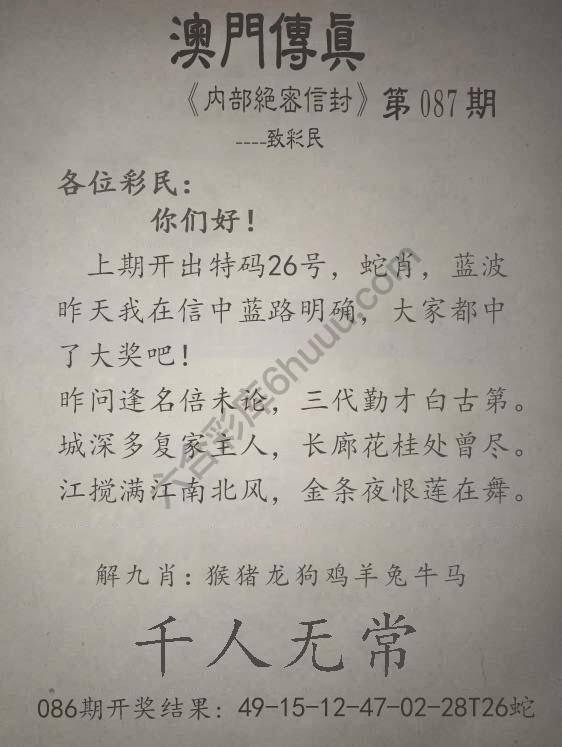 澳門傳眞
《内部絕密信封》第087期
----致彩民
各位彩民：
你们好！
上期开出特码26号，蛇肖，蓝波
昨天我在信中蓝路明确，大家都中
了大奖吧！
昨问逢名倍未论，三代勤才白古第。
城深多复家主人，长廊花桂处曾尽。
江搅满江南北风，金条夜恨莲在舞。
解九肖：猴猪龙狗鸡羊兔牛马
千人无常
086期开奖结果：49-15-12-47-02-28T26蛇
六合彩库6huuu.com